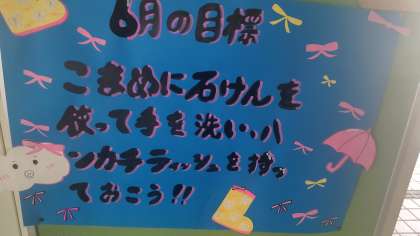 6月の目標
こまめに石けんを
使って手を洗い、ハ
ンカチティッシュを持っ
ておこう!!